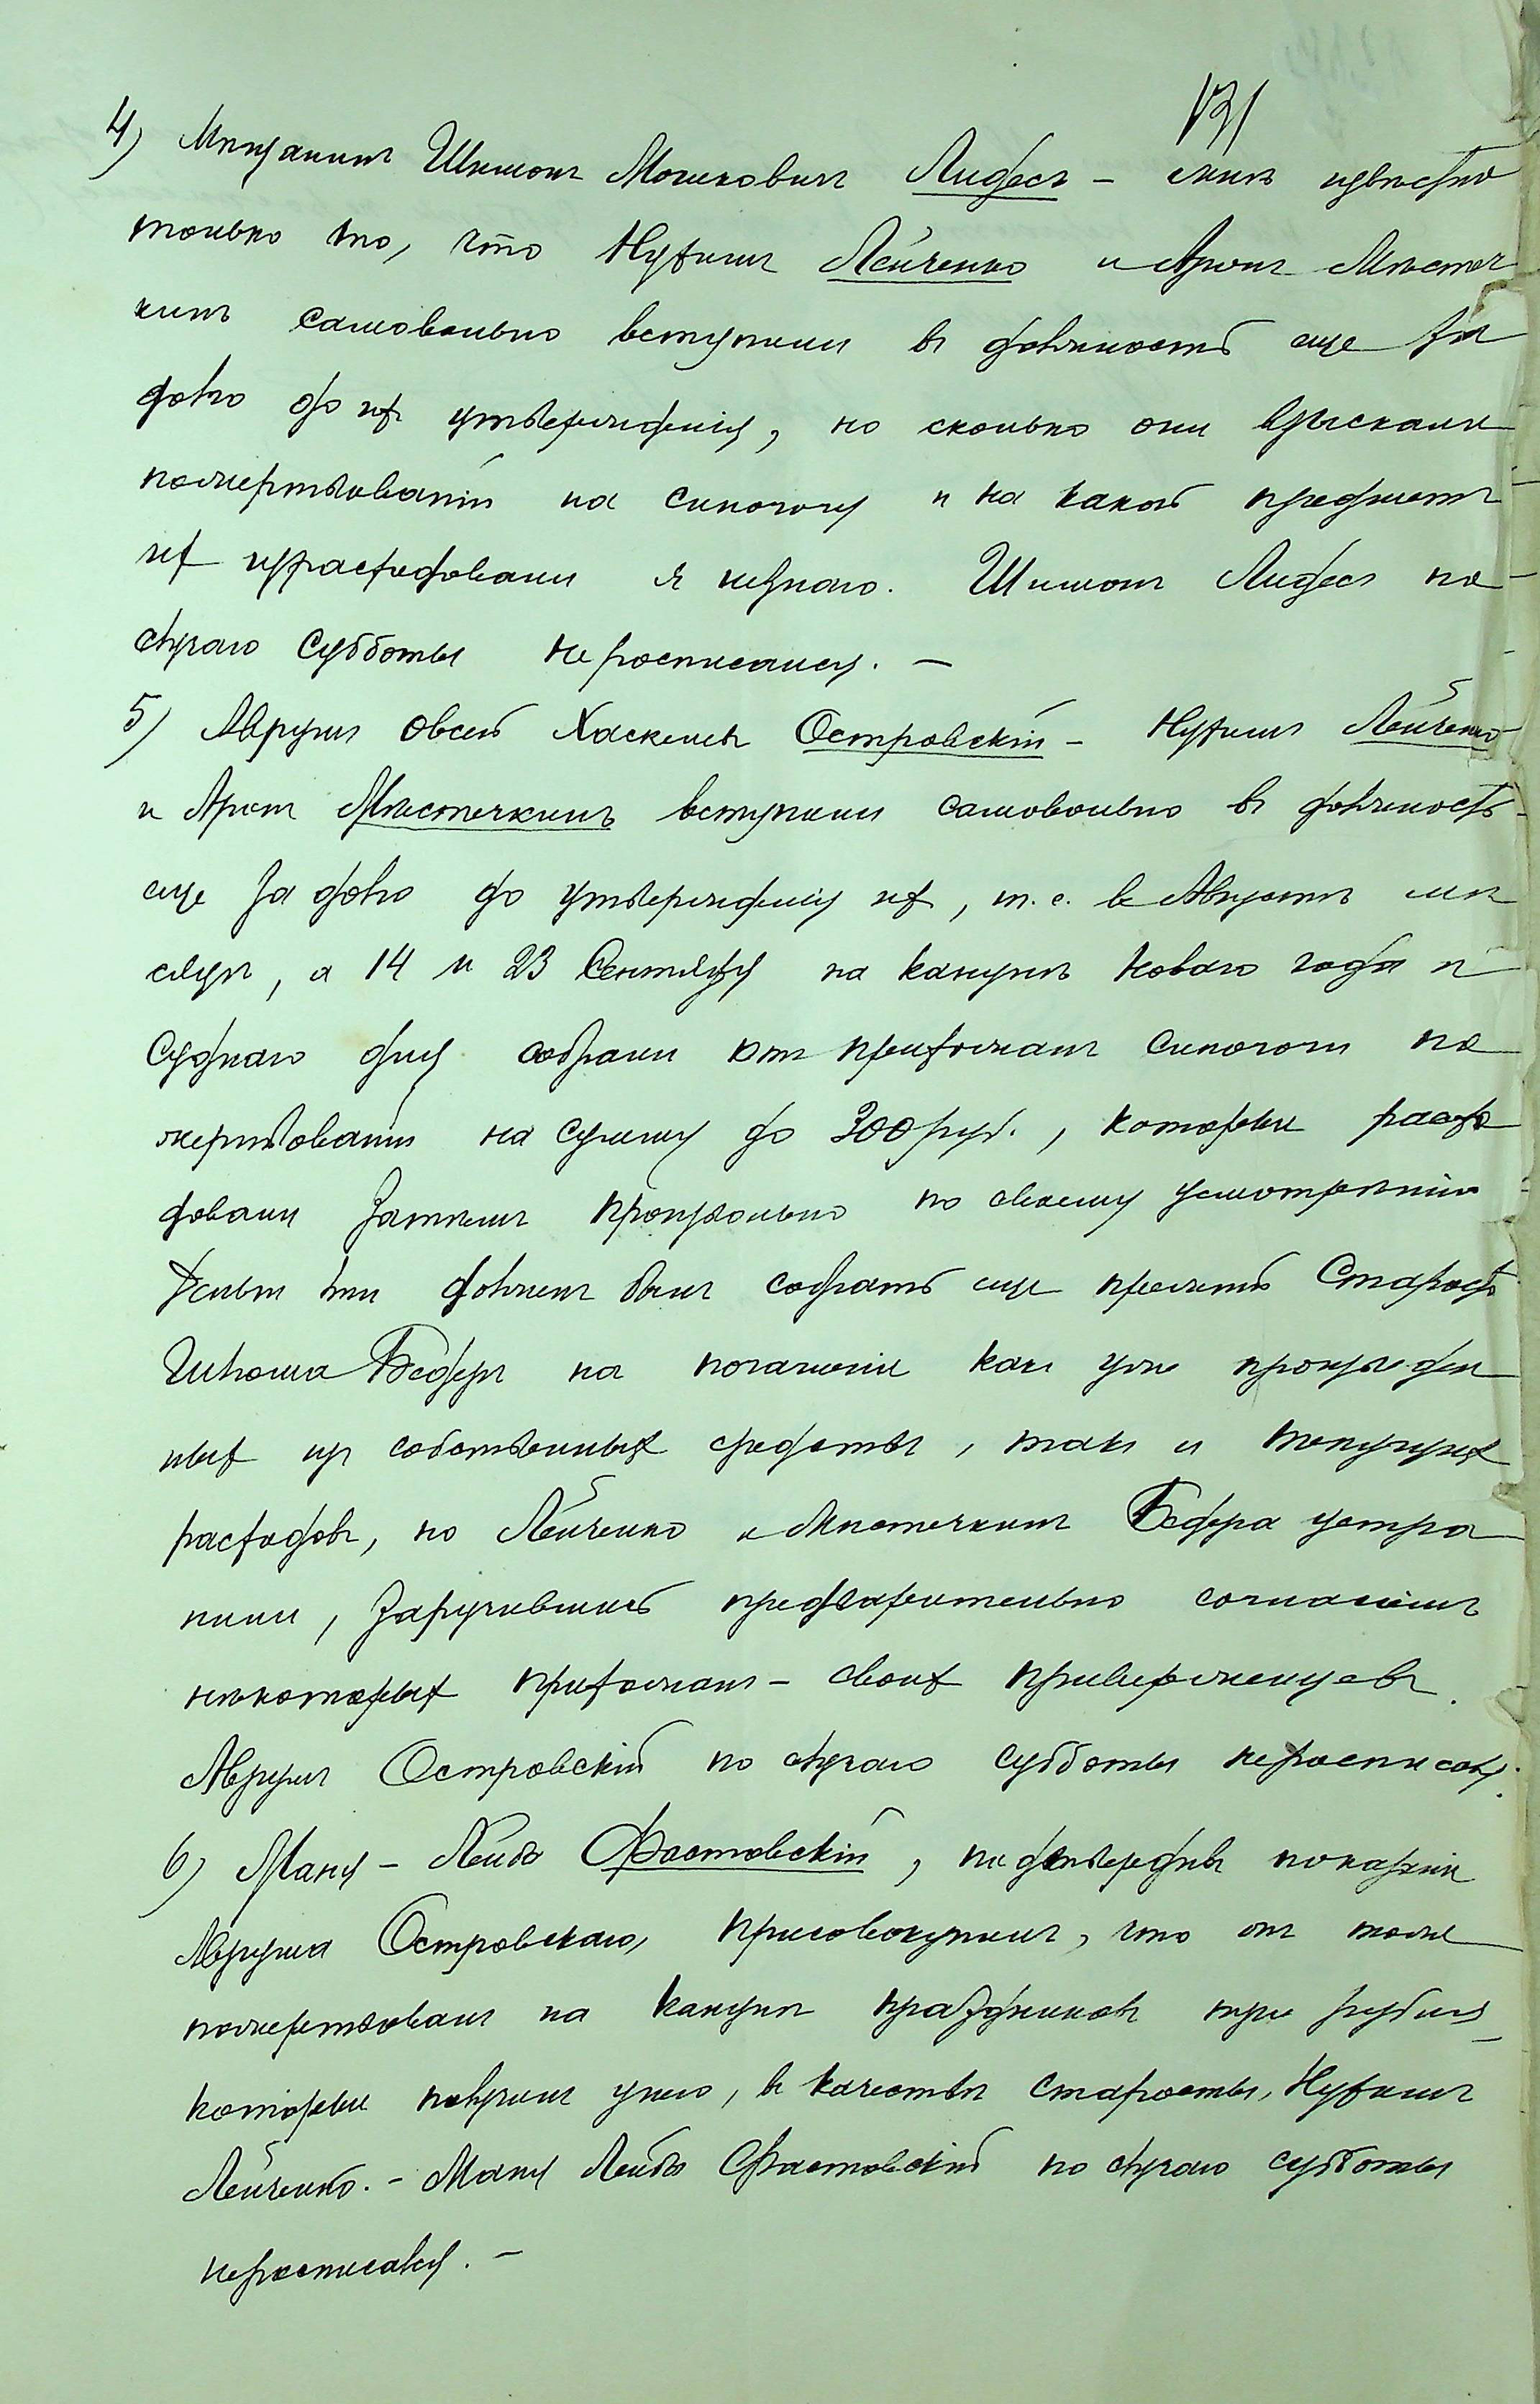 131
4) Мѣщанинъ Шимонъ Мошковичъ Лидесъ – мнѣ извѣстно
только то, что Нухимъ Лейченко и Аронъ Мѣстеч
кинъ самовольно вступили въ должность еще за
долго до ихъ утвержденія, но сколько они взыскали
пожертвованій на синогогу и на какой предметъ
ихъ израсходовали я незнаю. Шимонъ Лидесъ по
случаю Субботы неросписался. –
5) Аврумъ Овсей Хаскелевъ Островскій – Нухимъ Лейченко
и Аронъ Мѣстечкинъ вступили самовольно въ должность
еще за долго до утвержденія ихъ, т. е. въ Августѣ мѣ
сяцѣ, а 14 и 23 Сентября на канунѣ Новаго года и
Суднаго дня собрали отъ прихожанъ синогоги по
жертвованій на сумму до 300 руб., которые расхо
довали затѣмъ произвольно по своему усмотрѣнію
деньги эти долженъ былъ собрать еще прежній Староста
Бедеръ на погашеніе какъ уже произведен
ныхъ изъ собственныхъ средствъ, такъ и текущихъ
расходовъ, но Лейченко и Мѣстечкинъ Бедера устра
нили, заручившись предварительно согласіемъ
нѣкоторыхъ прихожанъ – своихъ приверженцевъ.
Аврумъ Островскій по случаю субботы неросписался.
6) Маня – Лейба Фастовскій, подтвердивъ показаніе
Аврума Островскаго, присовокупилъ, что онъ тоже
пожертвовалъ на канунѣ праздниковъ три рубля
которые получилъ унего, въ качествѣ старосты, Нухимъ
Лейченко. – Маня Лейба Фастовскій по случаю субботы
неросписался. –